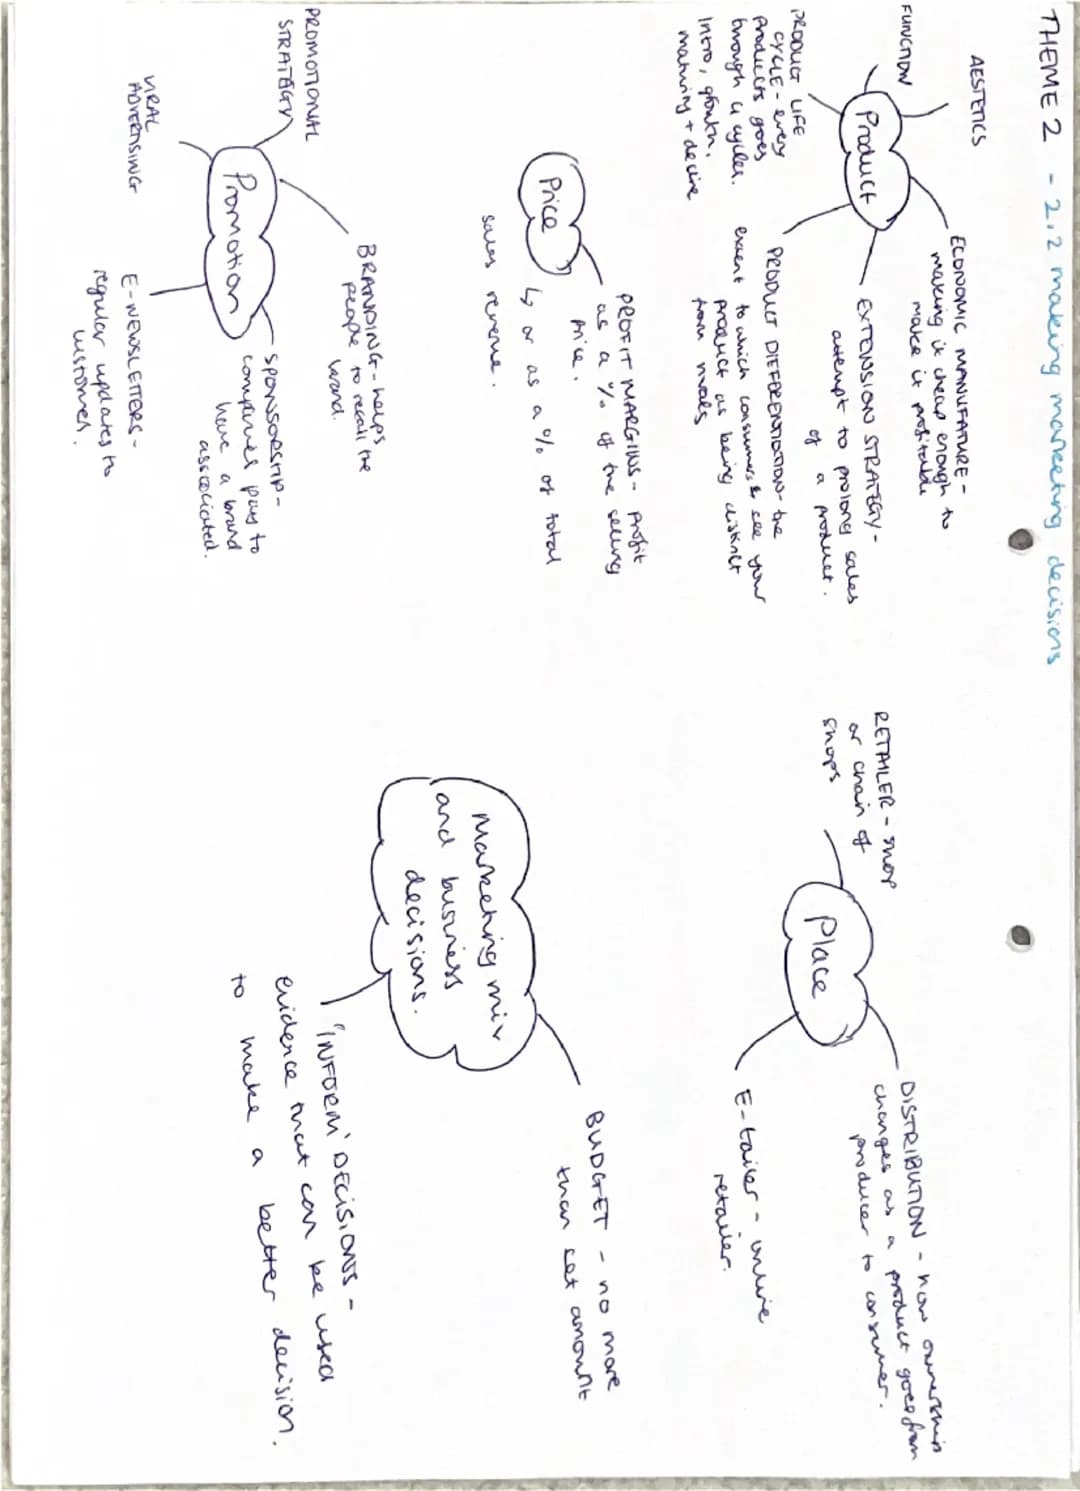 THEME 2 - 2.2 making marketing decisions
AESTETICS
FUNCTION
Product
ECONOMIC MANUFATURE -
making it cheap enough to
make it profitable
EXTENSION STRATEGY -
attempt to prolong sales
of a product.
PRODUCT LIFE
CYCLE - every
products goes
through a cycles.
Intro, growth,
maturity + decline
PRODUCT DIFFERENTIATION - the
extent to which consumers see your
product as being distinct
from rivals
Price
PROFIT MARGINS - profit
as a % of the selling
price.
↳ or as a % of total
sales revenue.
Promotion
PROMOTIONAL
STRATEGY
BRANDING - helps
people to recall the
brand.
SPONSORSHIP -
companies pay to
have a brand
associated.
VIRAL
ADVERTISING
E-NEWSLETTERS -
regular updates to
customers.
Place
RETAILER - shop
or chain of
shops
DISTRIBUTION - how ownership
changes as a product goes from
producer to consumer.
E-tailer - online
retailer.
Marketing mix
and business
decisions.
BUDGET - no more
than set amount
'INFORM' DECISIONS -
evidence that can be used
to make a better decision.